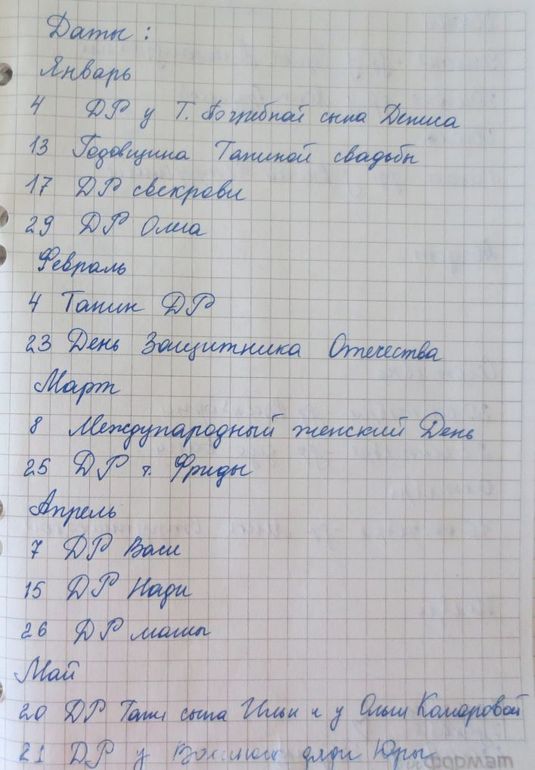 Даты:
Январь
4 ДР у Т. Погребной сына Дениса
13 Годовщина Таниной свадьбы
17 ДР свекрови
29 ДР Олега
Февраль
4 Танин ДР
23 День Защитника Отечества
Март
8 Международный женский День
25 ДР т. Фриды
Апрель
7 ДР Васи
15 ДР Нади
26 ДР мамы
Май
20 ДР Тани сына Ильи и у Ольги Комаровой
21 ДР у дяди Юры
формат